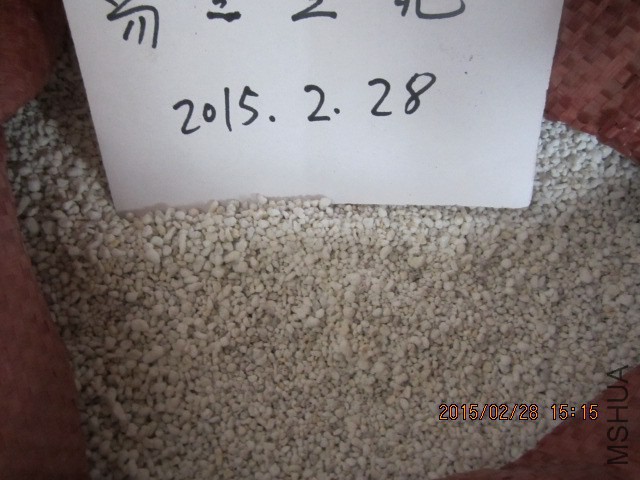 2015.2.28
2015/02/28 15:15
MSHUA